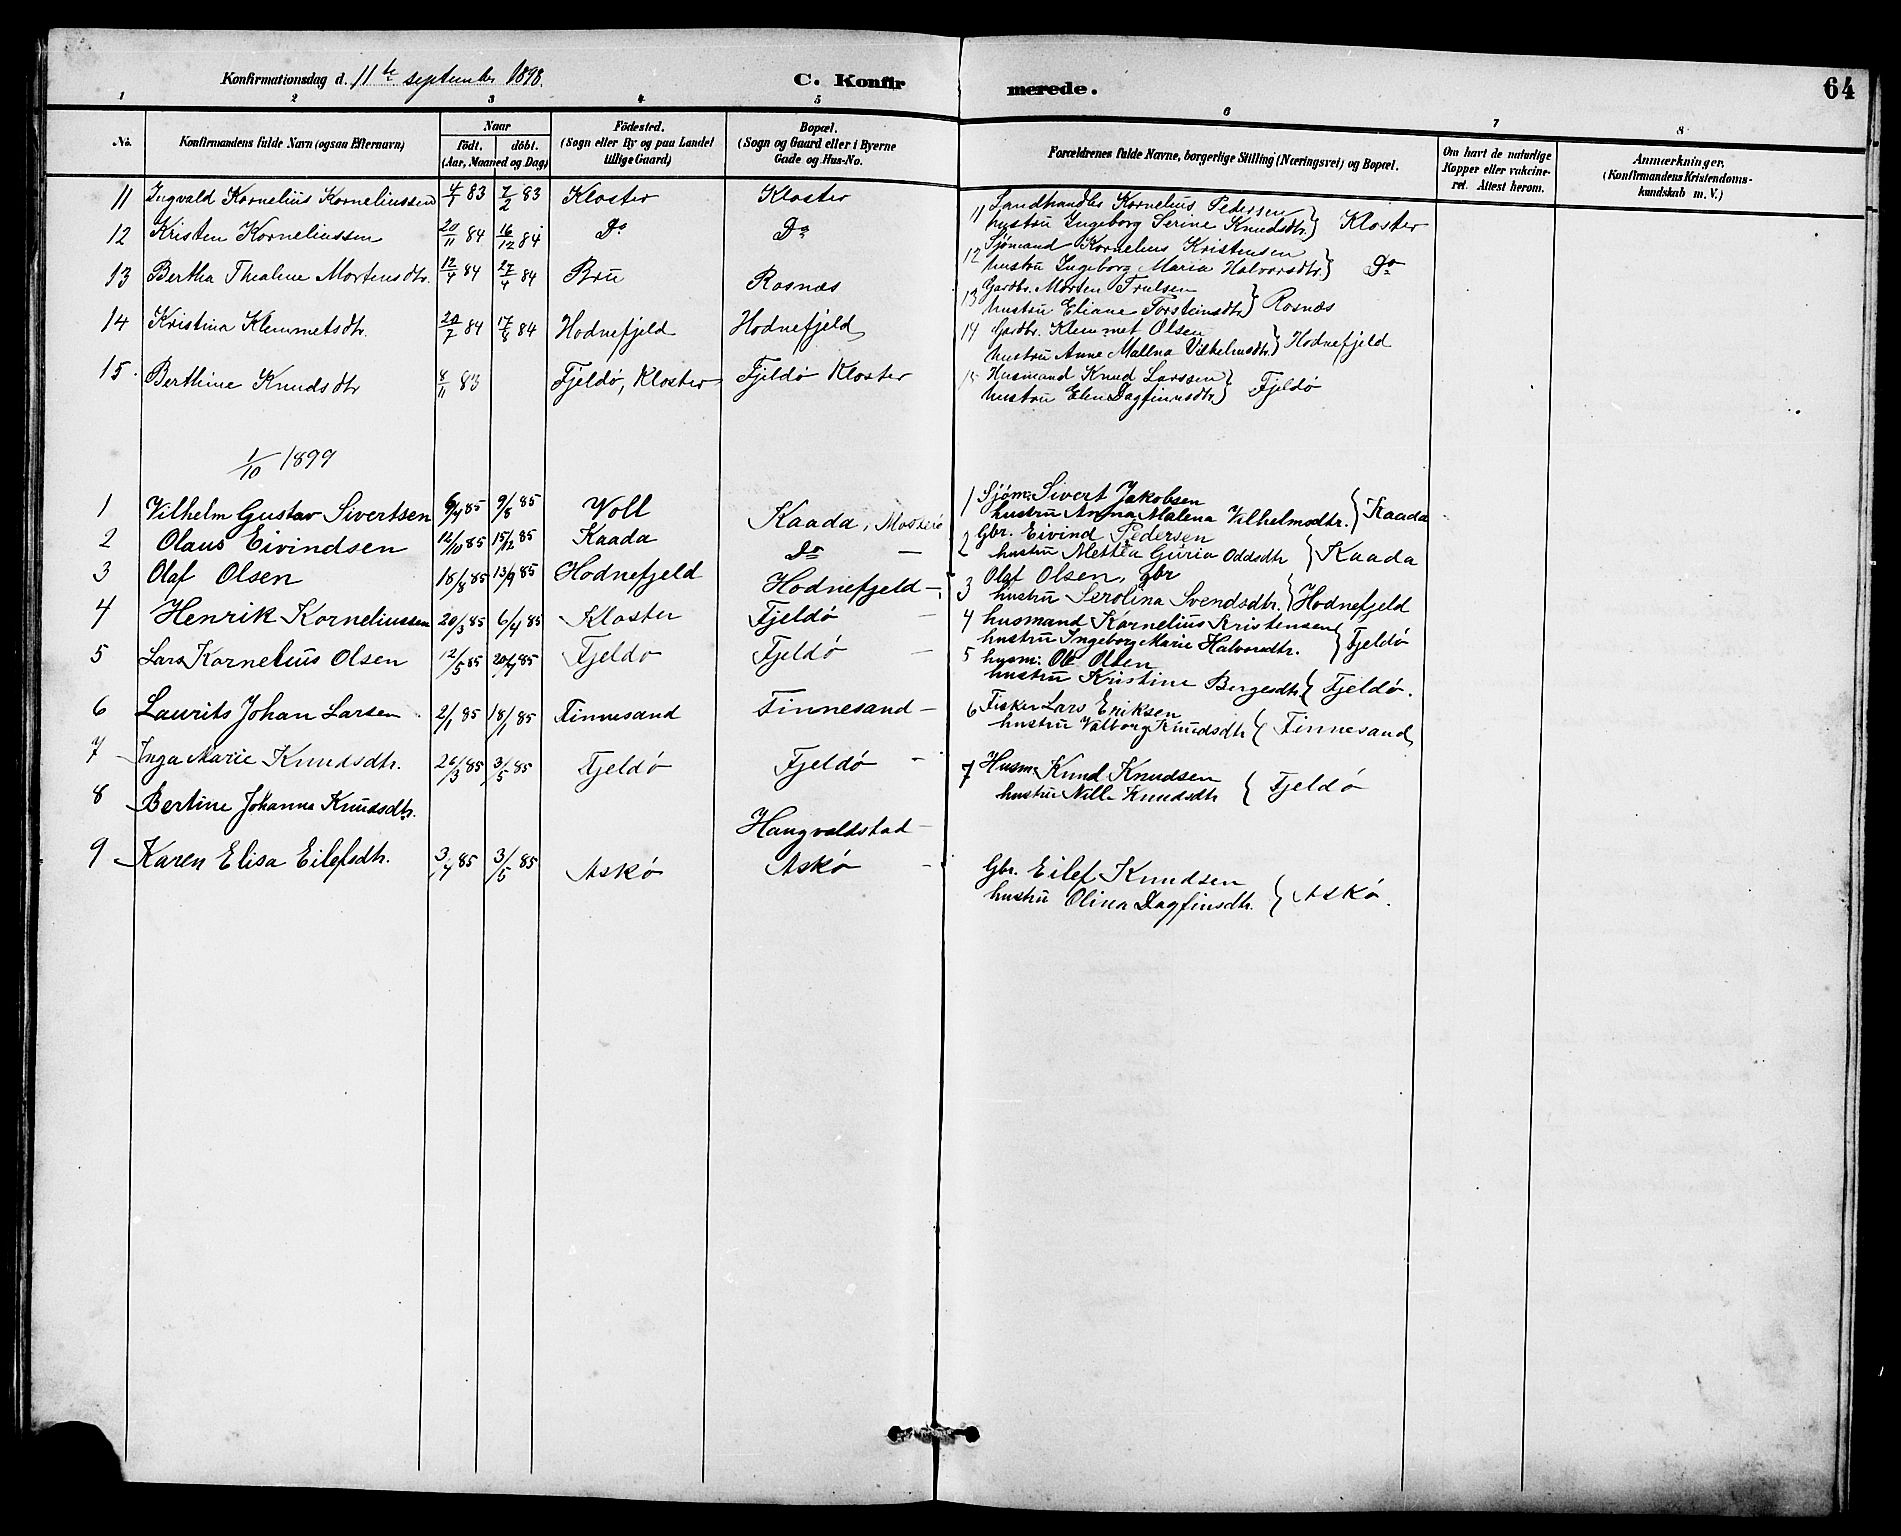 Konfirmationsdag d. 11te september 1898.
C. Konfirmerede.
64
1 2 3 4 5 6 7 8
No. Konfirmandens fulde Navn (ogsaa Efternavn) Naar födt. döbt. (Aar, Maaned og Dag) Födested. (Sogn eller By og paa Landet tillige Gaard) Bopæl. (Sogn og Gaard eller i Byerne Gade og Hus-No. Forældrenes fulde Navne, borgerlige Stilling (Næringsvei) og Bopæl. Om havt de naturlige Kopper eller vakcineret. Attest herom. Anmærkninger. (Konfirmandens Kristendomskundskab m. V.)
11 Ingvald Kornelius Korneliussen 4/1 83 7/2 83 Kloster Kloster 11 Landhandler Kornelius Pedersen
hustru Ingeborg Serine Knudsdtr. } Kloster
12 Kristen Korneliussen 20/11 84 16/12 84 Do Do 12 Sjömand Kornelius Kristensen
hustru Ingeborg Maria Halvorsdtr. } Do
13 Bertha Thaline Mortensdtr. 12/4 84 27/4 84 Bru Rosnæs 13 Gardbr. Morten Trulsen
hustru Eliane Torsteinsdtr } Rosnæs
14 Kristina Klemmetsdtr. 20/7 84 17/8 84 Hodnefjeld Hodnefjeld 14 Gardbr. Klemmet Olsen
hustru Anne Mallna Vilhelmsdtr. } Hodnefjeld
15. Berthine Knudsdtr 8/11 83 Fjeldö, Kloster Fjeldö Kloster 15 Husmand Knud Larssen
hustru Elen Dagfinnsdtr. } Fjeldö
1/10 1899
1 Vilhelm Gustav Sivertsen 6/4 85 9/8 85 Voll Kaada, Mosterö 1 Sjöm: Sivert Jakobsen
hustru Anna Malena Vilhelmsdtr. } Kaada
2 Olaus Eivindsen 12/10 85 15/12 85 Kaada Do — 2 Gbr. Eivind Pedersen
hustru Mettea Guria Oddsdtr } Kaada
3 Olaf Olsen 18/8 85 13/9 85 Hodnefjeld Hodnefjeld — 3 Olaf Olsen, gbr
hustru Serolina Svendsdtr. } Hodnefjeld
4 Henrik Korneliussen 20/3 85 6/4 85 Kloster Fjeldö — 4 husmand Kornelius Kristensen
hustru Ingeborg Marie Halvorsdtr. } Fjeldö
5 Lars Kornelius Olsen 12/5 85 20/7 85 Fjeldö Fjeldö — 5 husm: Ole Olsen
hustru Kristine Bergesdtr. } Fjeldö.
6 Laurits Johan Larsen 2/1 85 18/1 85 Finnesand Finnesand — 6 Fisker Lars Eriksen
hustru Valborg Knudsdtr } Finnesand
7 Inga Marie Knudsdtr. 26/3 85 3/5 85 Fjeldö Fjeldö — 7 Husm: Knud Knudsen
hustru Nille Knudsdtr } Fjeldö
8 Bertine Johanna Knudsdtr. Haugvaldstad —
9 Karen Elisa Eilefsdtr. 3/4 85 3/5 85 Askö Askö — Gbr. Eilef Knudsen
hustru Olina Dagfinsdtr. } Askö.